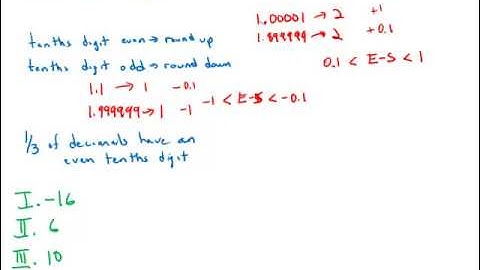 1.00001 → 2 +1
tenths digit even → round up
1.899999 → 2 +0.1
0.1 < E-S < 1
tenths digit odd → round down
1.1 → 1 -0.1
1.999999 → 1 -1
-1 < E-S < -0.1
1/3 of decimals have an
even tenths digit
I. -16
II. 6
III. 10